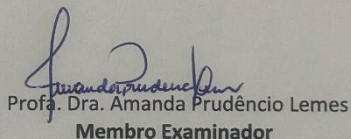 Amanda Prudêncio Lemes
Profa. Dra. Amanda Prudêncio Lemes
Membro Examinador